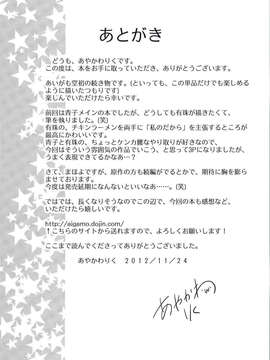 あとがき
どうも、あやかわりくです。
この度は、本をお手に取っていただき、ありがとうございます。
あいがも空初の続き物です。(といっても、この単品だけでも楽しめる
ように描いたつもりです)
楽しんでいただけたら幸いです。
前回は青子メインの本でしたが、どうしても有珠が描きたくて、
筆を執りました。(笑)
有珠の、チキンラーメンを両手に「私のだから」を主張するところが
最高にかわいいです。
青子と有珠の、ちょっとケンカ腰なやり取りが好きなので、
今回はそういう雰囲気の作品でいこう、と思って3Pになりましたが、
うまく表現できてるかなあ…?
さて、まほよですが、原作の方も続編がでるとかで、期待に胸を膨ら
ませております。
今度は発売延期にならないといいなあ……。(笑)
ではでは、長くなりそうなのでこの辺で、今回の本も感想など、
いただけたら嬉しいです。
http://aigamo.dojin.com/
↑こちらのサイトから送れますので、よろしくお願いします!
ここまで読んでくださってありがとうございました。
あやかわりく 2012/11/24
あやかわ
りく